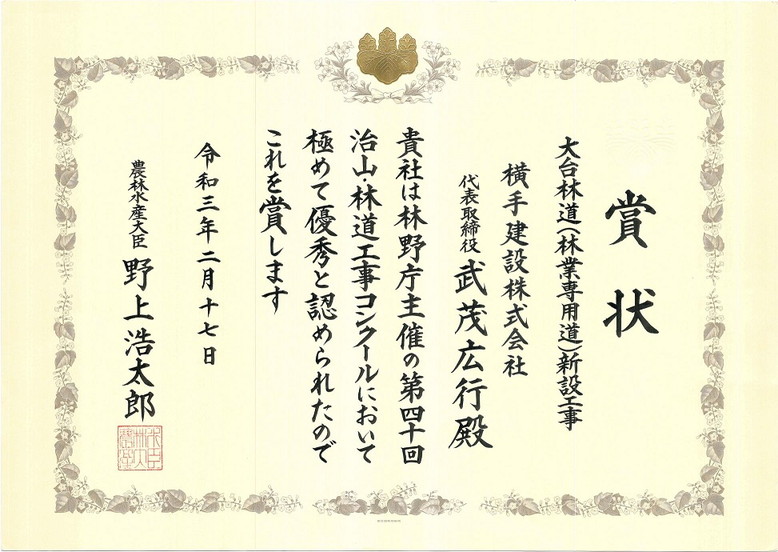 賞状
大台林道(林業専用道)新設工事
横手建設株式会社
代表取締役 武茂広行殿
貴社は林野庁主催の第四十回
治山・林道工事コンクールにおいて
極めて優秀と認められたので
これを賞します
令和三年二月十七日
農林水産大臣 野上浩太郎